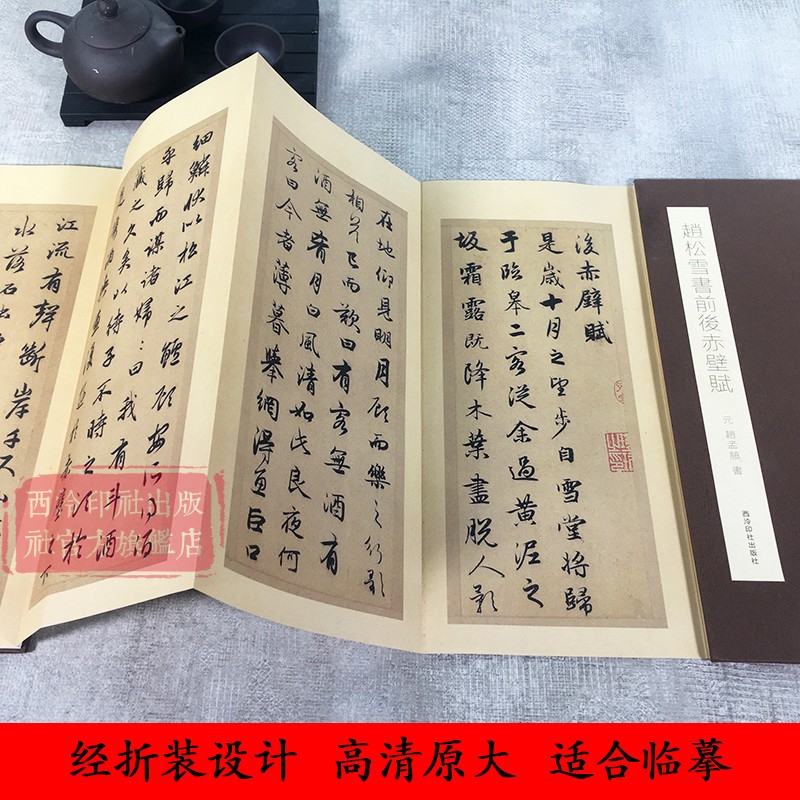 趙松雪書前後赤壁賦
元 趙孟頫 書
西泠印社出版社
後赤壁賦
是歲十月之望步自雪堂將歸
于臨皋二客從余過黃泥之
坂霜露既降木葉盡脫人影
在地仰見明月顧而樂之行歌
相答已而歎曰有客無酒有
酒無肴月白風清如此良夜何
客曰今者薄暮舉網得魚巨口
細鱗狀似松江之鱸顧安所得酒
乎歸而謀諸婦〻曰我有斗酒
藏之久矣以待子不時之須於
是
江流有聲斷岸千尺山
水落石出
西泠印社出版
社官方旗艦店
经折装设计 高清原大 适合临摹